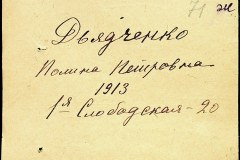 71 ж
Дьядченко
Полина Петровна
1913
1ая Слободская - 20